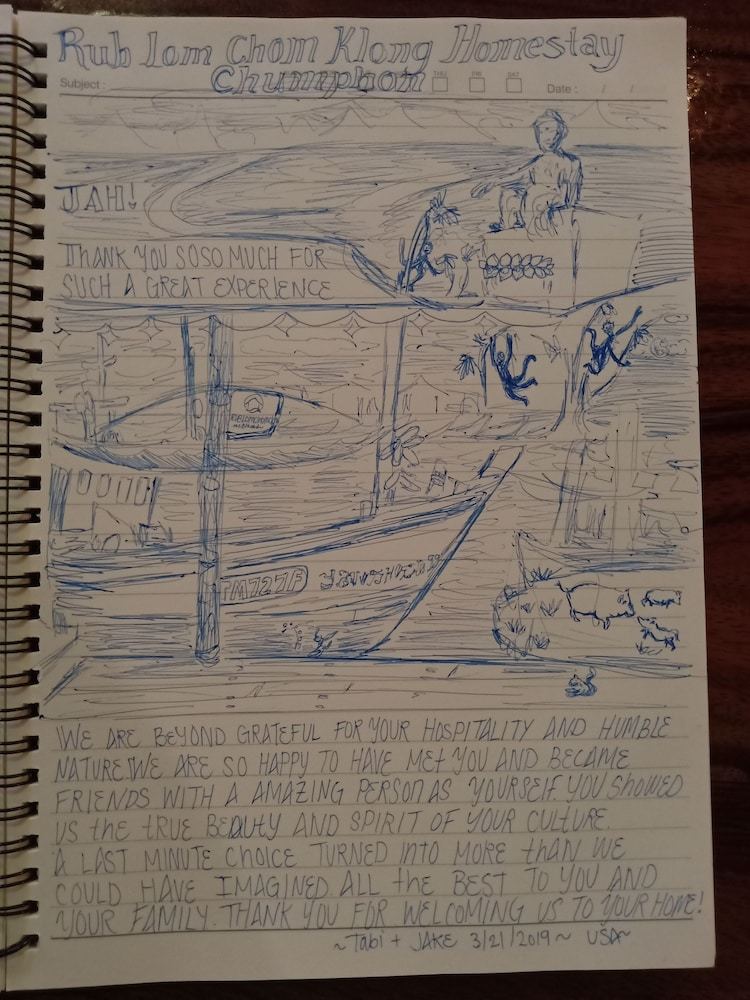 Rub Lom Chom Klong Homestay
Chumphon
Subject :
THU
FRI
SAT
Date : / /
JAH!
THANK YOU SOSO MUCH FOR
SUCH A GREAT EXPERIENCE
TM727F
WE ARE BEYOND GRATEFUL FOR YOUR HOSPITALITY AND HUMBLE
NATURE! WE ARE SO HAPPY TO HAVE MET YOU AND BECAME
FRIENDS WITH A AMAZING PERSON AS YOURSELF. YOU SHOWED
US the TRUE BEAUTY AND SPIRIT OF YOUR CULTURE.
A LAST MINUTE CHOICE TURNED INTO MORE thAN WE
COULD HAVE IMAGINED. ALL the BEST TO YOU AND
YOUR FAMILY. THANK YOU FOR WELCOMING US TO YOUR HOME!
~Tabi + JAKE 3/21/2019~ USA~